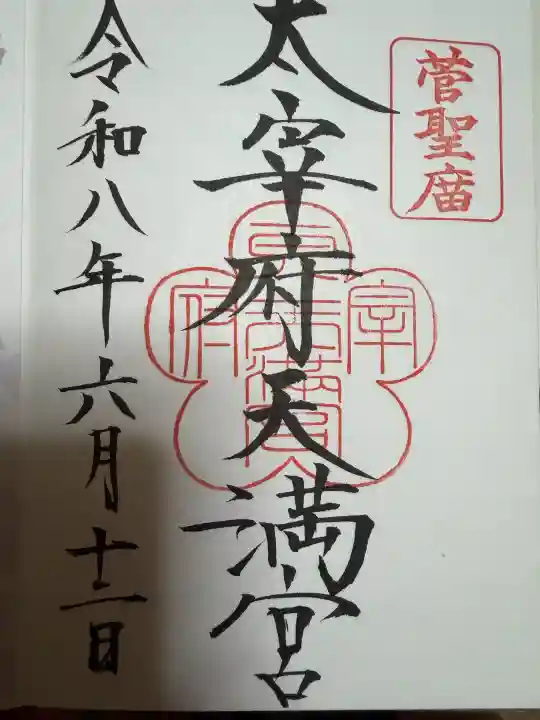 菅聖廟
太宰府天満宮
令和八年六月十二日